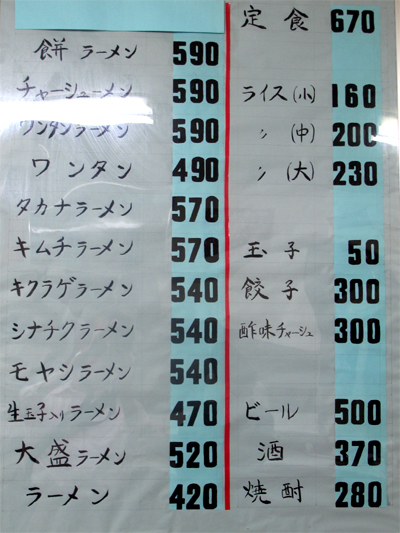 餅ラーメン 590
チャーシューメン 590
ワンタンラーメン 590
ワンタン 490
タカナラーメン 570
キムチラーメン 570
キクラゲラーメン 540
シナチクラーメン 540
モヤシラーメン 540
生玉子入りラーメン 470
大盛ラーメン 520
ラーメン 420
定食 670
ライス(小) 160
〃 (中) 200
〃 (大) 230
玉子 50
餃子 300
酢味チャーシュ 300
ビール 500
酒 370
焼酎 280